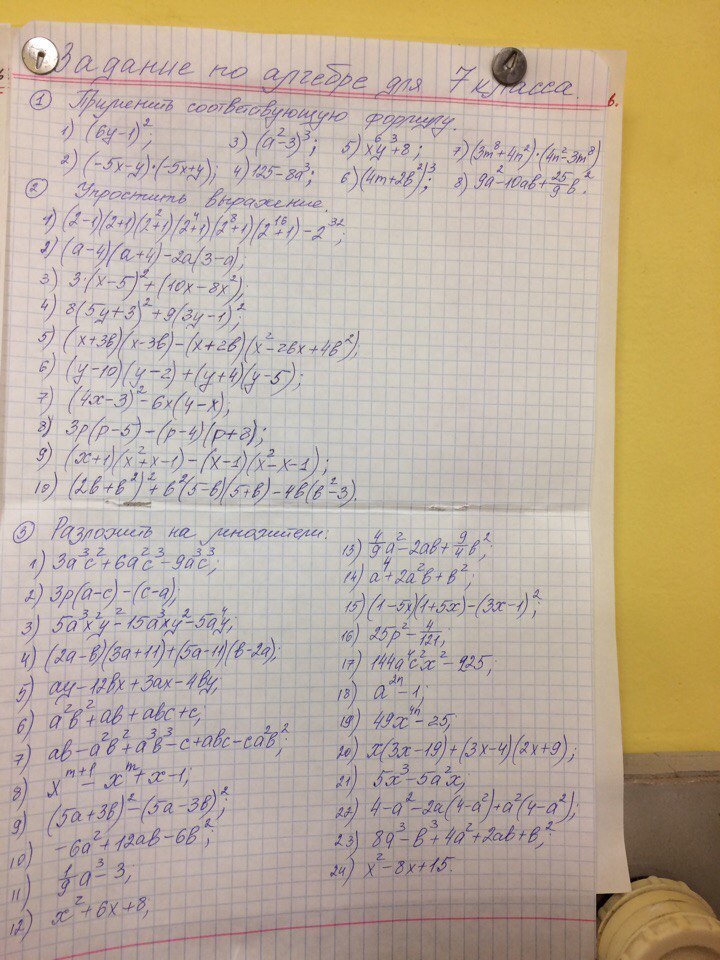 Задание по алгебре для 7 класса.
① Применить соответствующую формулу.
1) (6y-1)²; 3) (a²-3)³; 5) x⁶y³+8; 7) (3m⁸+4n²)·(4n²-3m⁸)
2) (-5x-y)·(-5x+y); 4) 125-8a³; 6) (4m+2b²)³; 8) 9a²-10ab+25/9b².
② Упростить выражение.
1) (2-1)(2+1)(2²+1)(2⁴+1)(2⁸+1)(2¹⁶+1)-2³²;
2) (a-4)(a+4)-2a(3-a);
3) 3·(x-5)²+(10x-8x²);
4) 8(5y+3)²+9(3y-1)²;
5) (x+3b)(x-3b)-(x+2b)(x²-2bx+4b²);
6) (y-10)(y-2)+(y+4)(y-5);
7) (4x-3)²-6x(4-x);
8) 3p(p-5)-(p-4)(p+8);
9) (x+1)(x²+x-1)-(x-1)(x²-x-1);
10) (2b+b²)²+b²(5-b)(5+b)-4b(b²-3).
③ Разложить на множители:
1) 3a³c²+6a²c³-9a³c³;
2) 3p(a-c)-(c-a);
3) 5a³x²y²-15a³xy²-5ay⁴;
4) (2a-b)(3a+11)+(5a-11)(b-2a);
5) ay-12bx+3ax-4by;
6) a²b²+ab+abc+c;
7) ab-a²b²+a³b³-c+abc-ca²b²;
8) xᵐ⁺¹-xᵐ+x-1;
9) (5a+3b)²-(5a-3b)²;
10) -6a²+12ab-6b²;
11) 1/9a³-3;
12) x²+6x+8;
13) 4/9a²-2ab+9/4b²;
14) a⁴+2a²b+b²;
15) (1-5x)(1+5x)-(3x-1)²;
16) 25p²-4/121;
17) 144a⁴c²x²-225;
18) a²ⁿ-1;
19) 49x⁴ⁿ-25;
20) x(3x-19)+(3x-4)(2x+9);
21) 5x³-5a²x;
22) 4-a²-2a(4-a²)+a²(4-a²);
23) 8a³-b³+4a²+2ab+b²;
24) x²-8x+15.